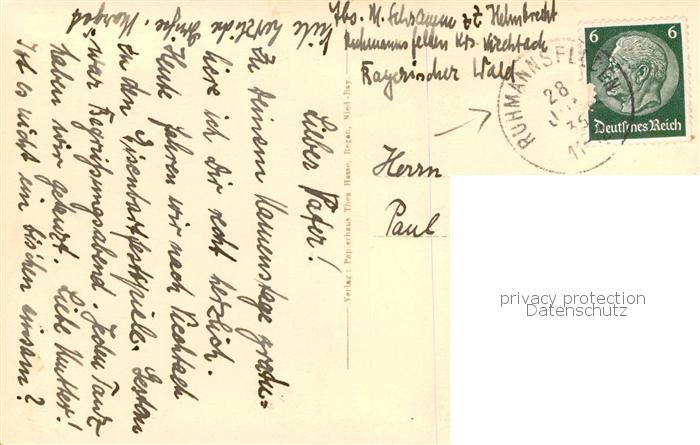 Abs. M. Schramm z.Z. Helmbrecht
Ruhmannsfelden Krs. Viechtach
Bayerischer Wald
Lieber Vater!
Zu Deinem Namenstage gratu-
liere ich Dir recht herzlich.
Heute fahren wir nach Viechtach
zu den Eisenbartfestspiele. Gestern
war Begrüßungsabend. Jeden Tanz
haben wir getanzt. Liebe Mutter!
Ist es nicht ein bischen einsam?
Viele herzliche Grüße, Margot
Verlag: Papierhaus Theo Hesse, Regen, Nied.-Bay.
RUHMANNSFELDEN
28
35
11
6 6
Deutsches Reich
Herrn
Paul
privacy protection
Datenschutz